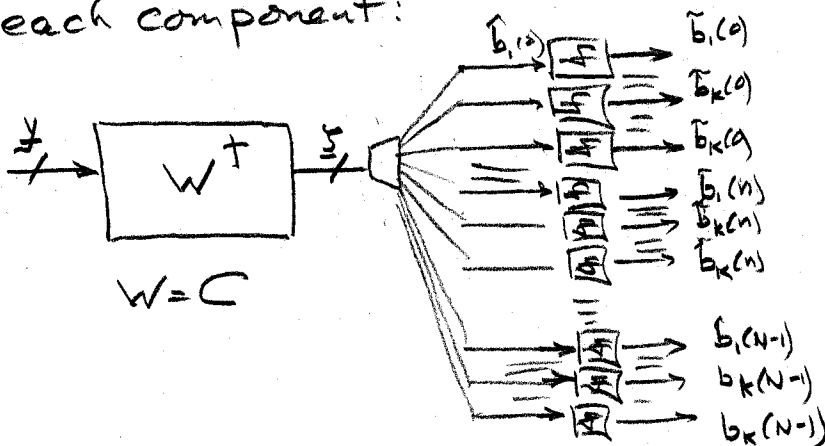 each component:
b̂₁(0) b̃₁(0)
b̃ₖ(0)
y b̃ₖ(0)
W†
b̃₁(n)
b̃ₖ(n)
b̃ₖ(n)
W = C
b₁(N-1)
bₖ(N-1)
bₖ(N-1)